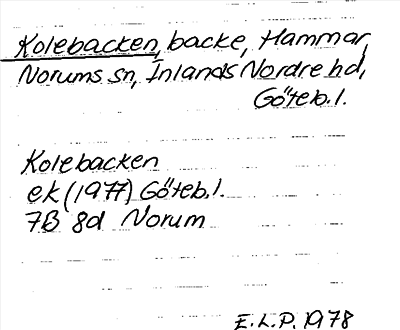 Kolebacken, backe, Hammar,
Norums sn, Inlands Nordre hd,
Göteb. l.
Kolebacken
ek (1977) Göteb. l.
7B 8d Norum
E.L.P. 1978